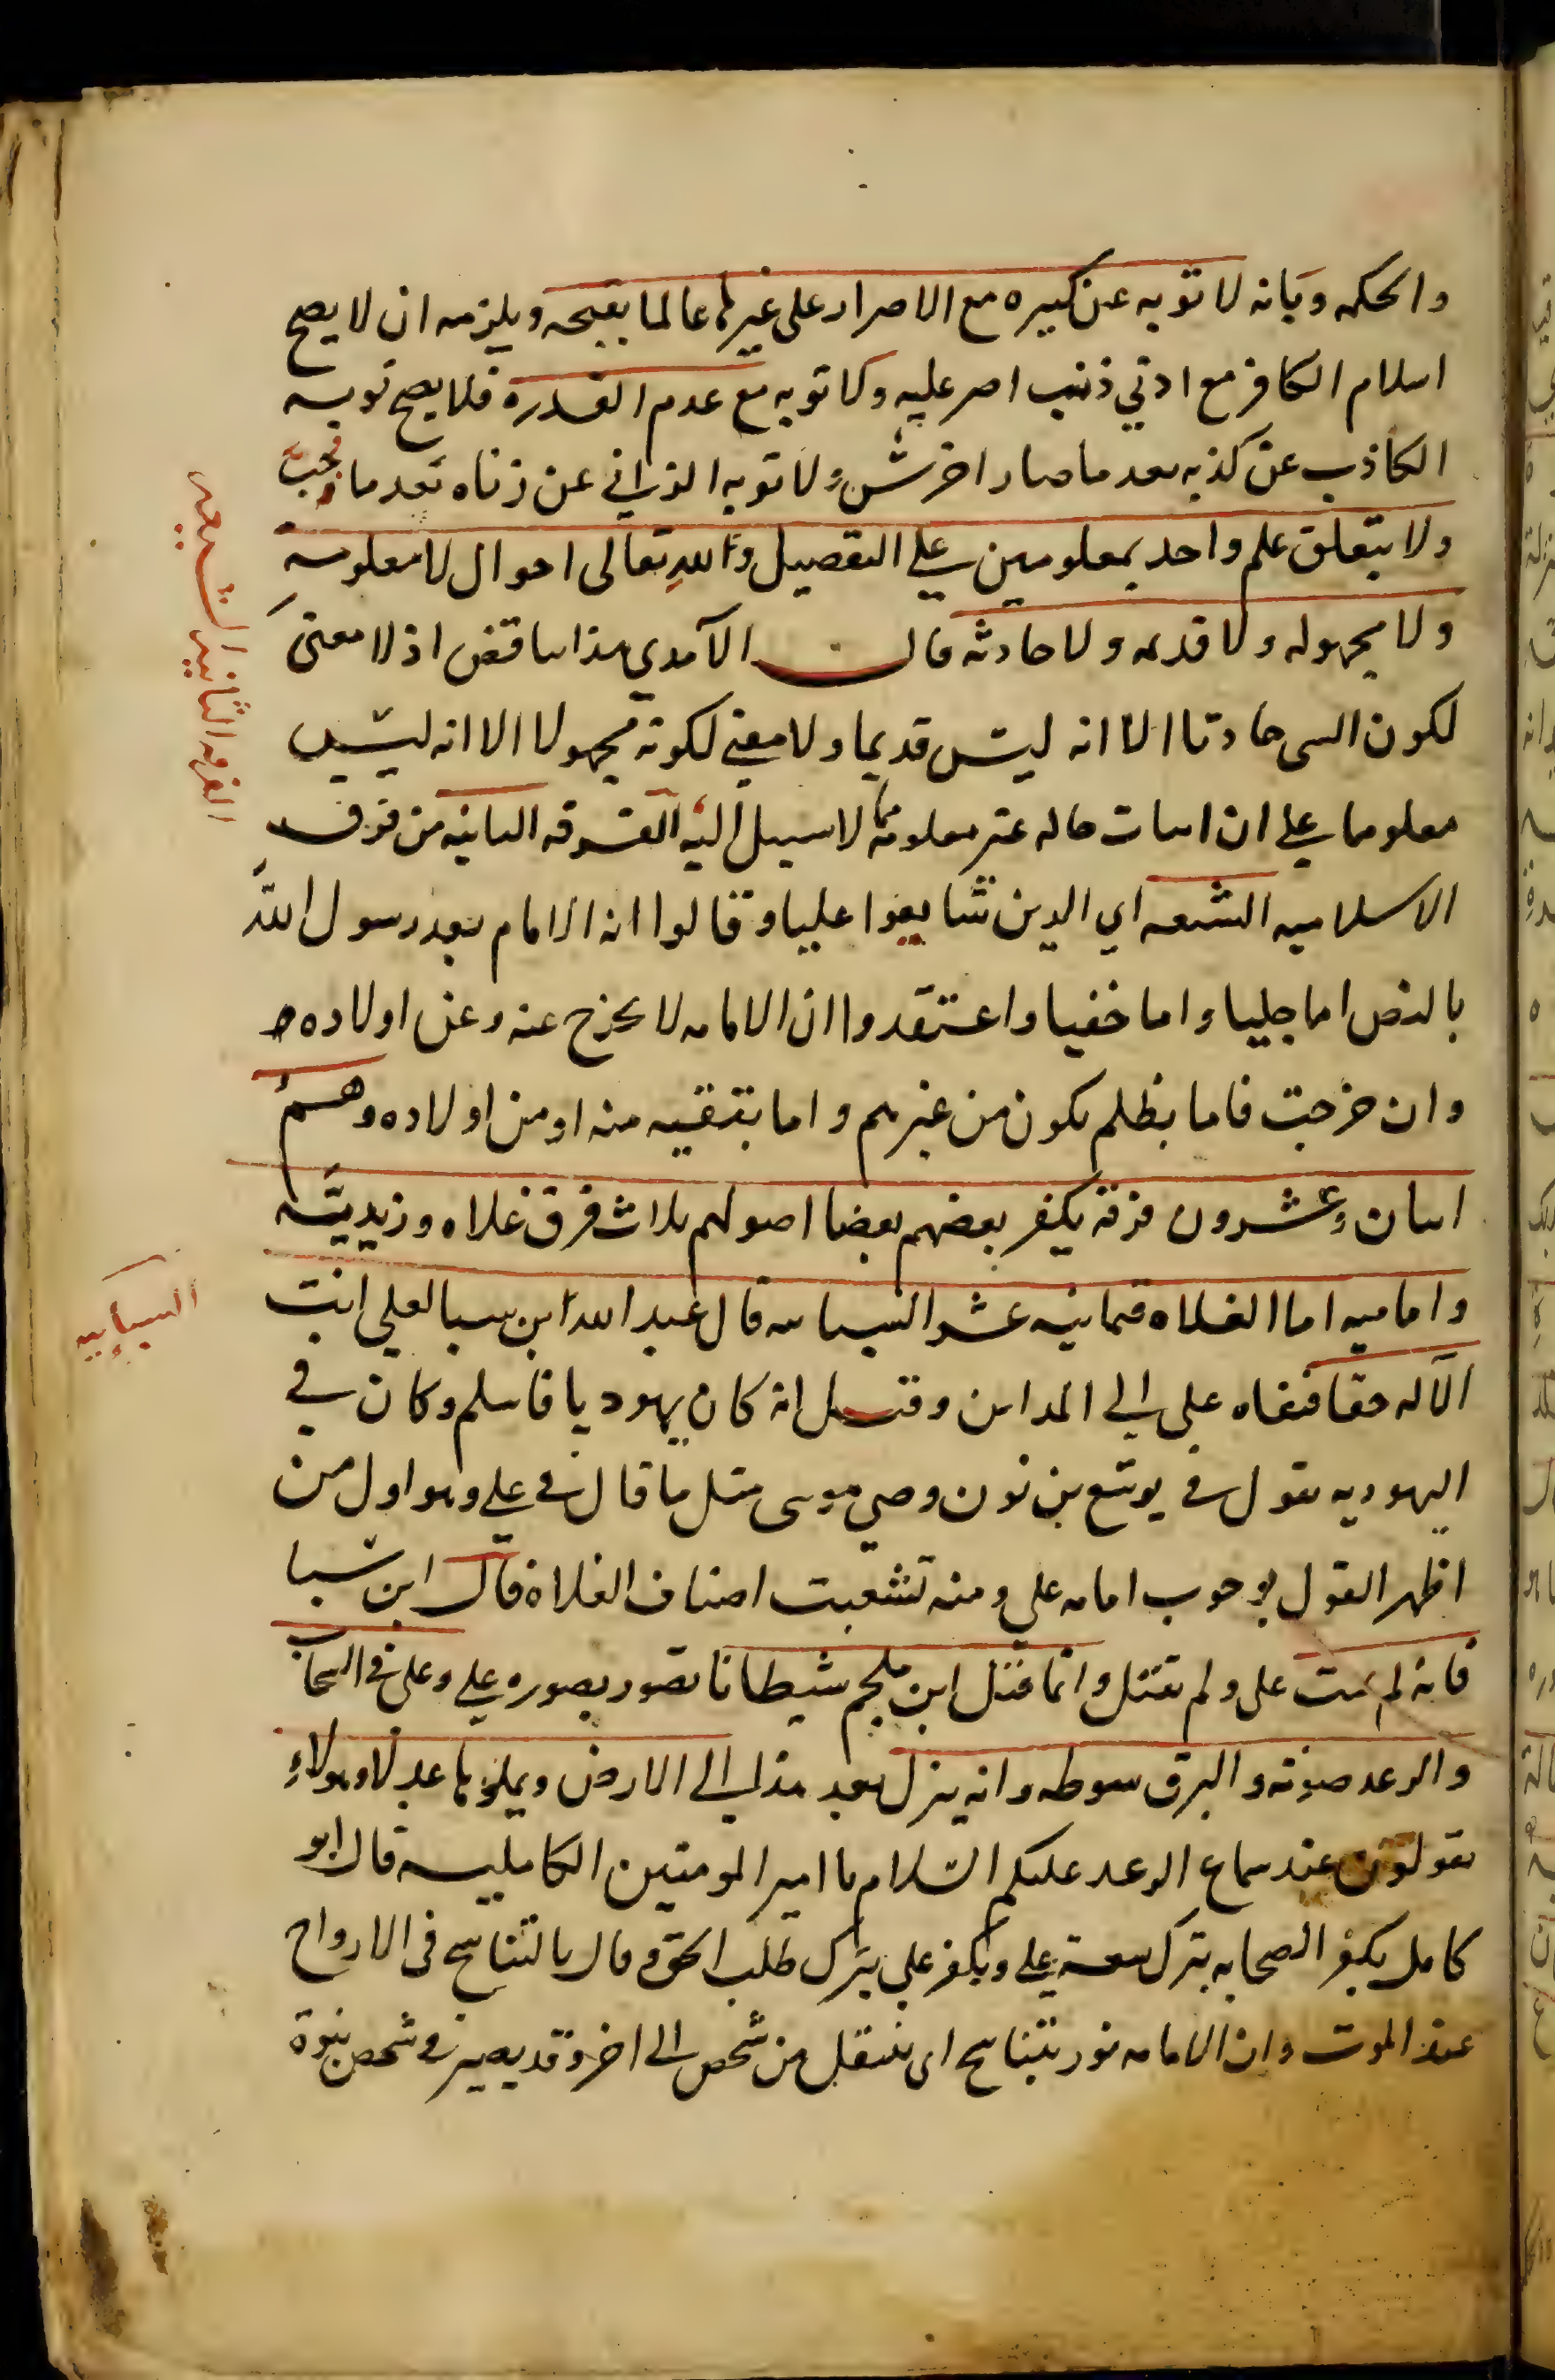 والحكمه وبانه لا توبه عن كبيره مع الاصرار على غيرها عالما بقبحه ويلزمه ان لا يصح
اسلام الكافر مع ادني ذنب اصر عليه ولا توبه مع عدم القدره فلا يصح توبه
الكاذب عن كذبه بعد ما صار اخرس ولا توبه الزاني عن زناه بعد ما جب
ولا يتعلق علم واحد بمعلومين علي التفصيل ولله تعالى احوال لا معلومة
ولا مجهوله ولا قديمه ولا حادثه قال الآمدي هذا تناقض اذ لا معنى
لكون الشي حادثا الا انه ليس قديما ولا معني لكونه مجهولا الا انه ليس
معلوما علي ان اثبات حاله غير معلومة مما لا سبيل اليه الفرقه الثانيه من فرق
الاسلاميه الشيعه اي الذين شايعوا عليا وقالوا انه الامام بعد رسول الله
بالنص اما جليا واما خفيا واعتقدوا ان الامامه لا يخرج عنه وعن اولاده
وان خرجت فاما بظلم يكون من غيرهم واما بتقيه منه او من اولاده وهم
اثنان وعشرون فرقة يكفر بعضهم بعضا اصولهم ثلاث فرق غلاه وزيديَّه
واماميه اما الغلاه فثمانيه عشر السبائيه قال عبد الله ابن سبا لعلي انت
الآله حقا فنفاه علي الي المداين وقيل انه كان يهوديا فاسلم وكان في
اليهوديه يقول في يوشع بن نون وصي موسى مثل ما قال في علي وهو اول من
اظهر القول بوجوب امامه علي ومنه تشعبت اصناف الغلاة قال ابن سبا
فانه لم يمت علي ولم يقتل وانما قتل ابن ملجم شيطانا تصور بصوره علي وعلي في السحاب
والرعد صوته والبرق سوطه وانه ينزل بعد هذا الي الارض ويملؤها عدلا وهولاءِ
يقولون عند سماع الرعد عليكم السلام يا امير المومنين الكامليه قال ابو
كامل يكفر الصحابه بترك بيعة علي ويكفر علي بترك طلب الحق وقال بالتناسخ في الارواح
عند الموت وان الامامه نور يتناسخ اى ينتقل من شخص الى اخر وقد يصير في شخص نبوة
الفرقه الثانيه الشيعه
السبأييه